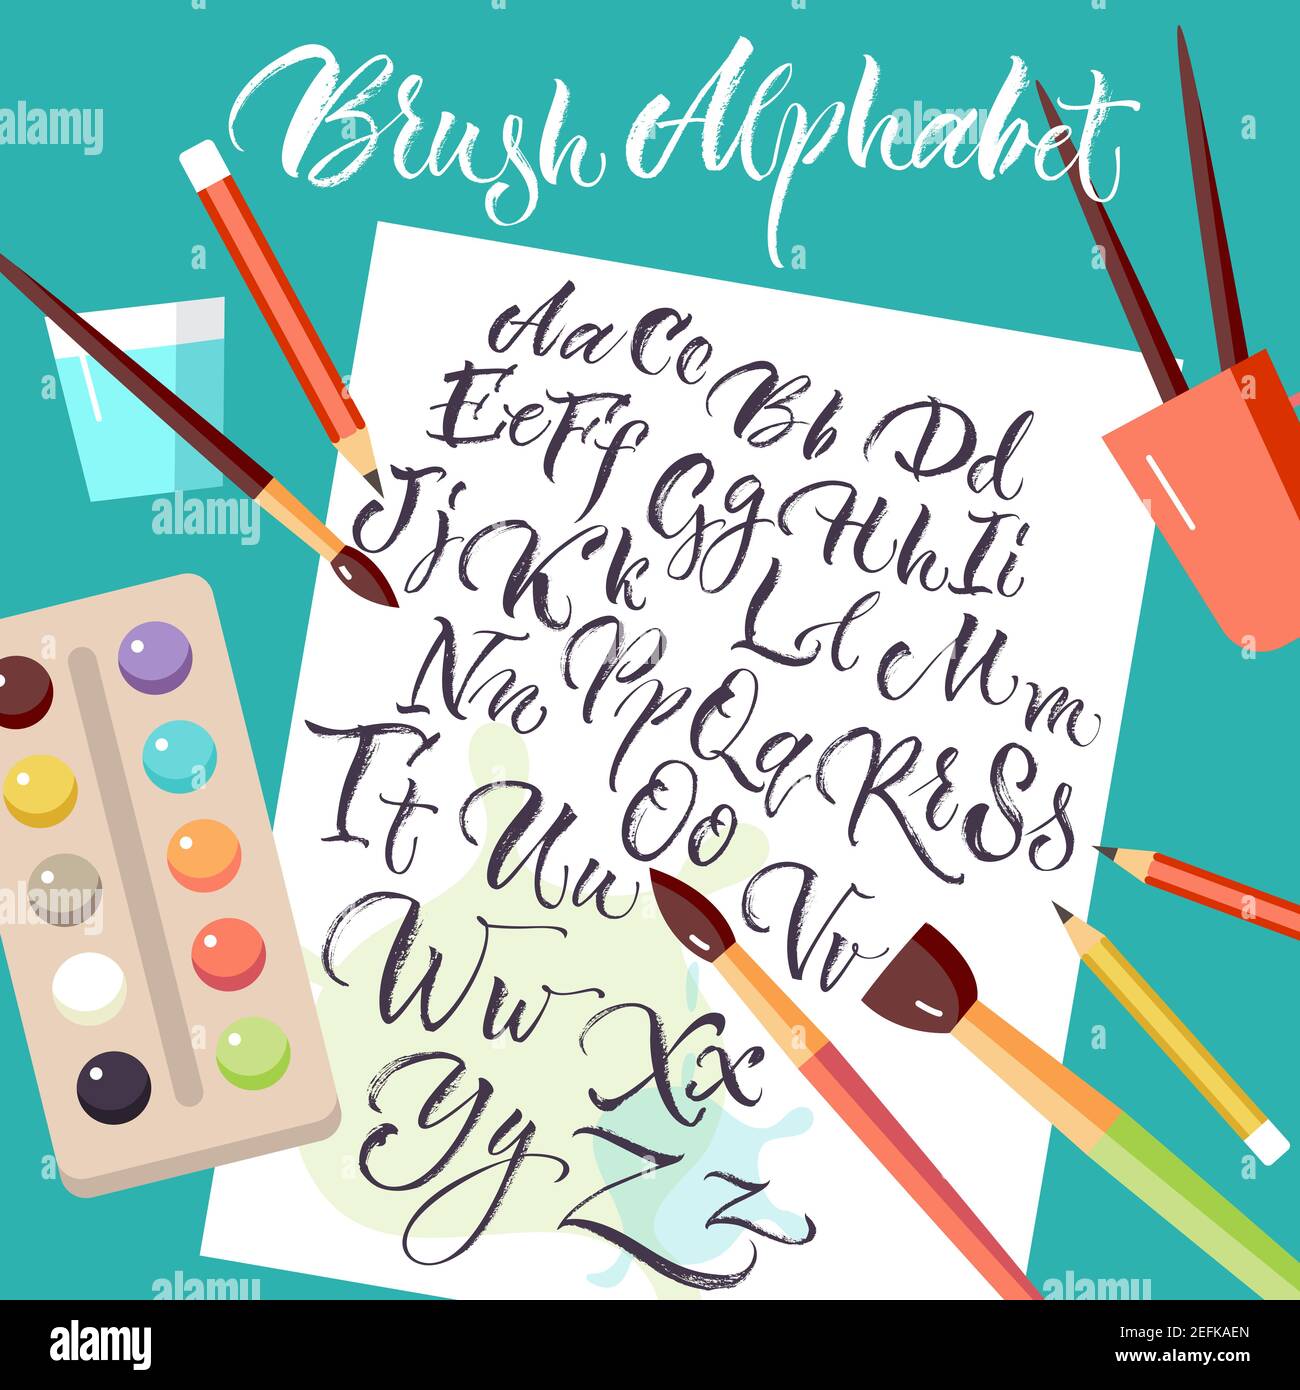 Brush Alphabet
Aa Cc Bb Dd
Ee Ff Gg Hh Ii
Jj Kk Ll Mm
Nn Pp Qq Rr Ss
Tt Uu Oo Vv
Ww Xx
Yy Zz
alamy
Image ID: 2EFKAEN
www.alamy.com